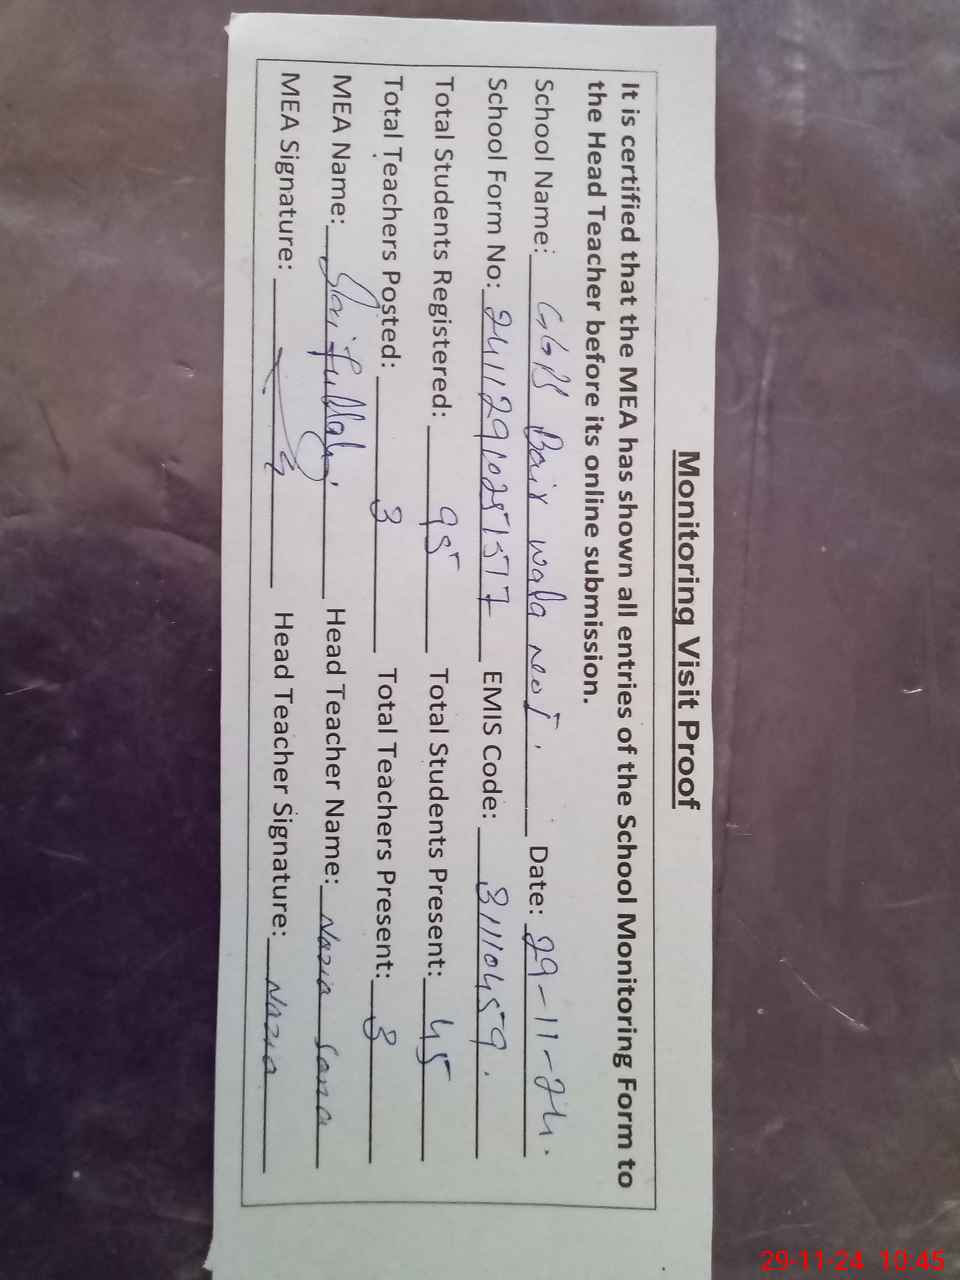 Monitoring Visit Proof
It is certified that the MEA has shown all entries of the School Monitoring Form to
the Head Teacher before its online submission.
School Name: GGPS Bair wala no 1. Date: 29-11-24.
School Form No: 24112910251517 EMIS Code: 31110459.
Total Students Registered: 95 Total Students Present: 45
Total Teachers Posted: 3 Total Teachers Present: 3
MEA Name: Saifullah Head Teacher Name: Nazia Sana
MEA Signature: Head Teacher Signature: Nazia
29-11-24 10:45